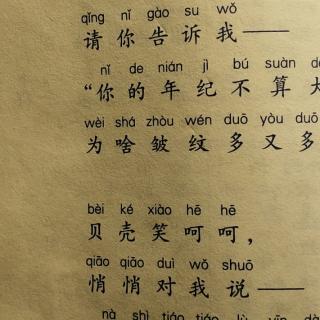 qǐng nǐ gào su wǒ
请你告诉我——
nǐ de nián jì bú suàn
“你的年纪不算
wèi shá zhòu wén duō yòu duō
为啥皱纹多又多
bèi ké xiào hē hē
贝壳笑呵呵，
qiāo qiāo duì wǒ shuō
悄悄对我说——
nà shì tiáo tiáo lù yìn